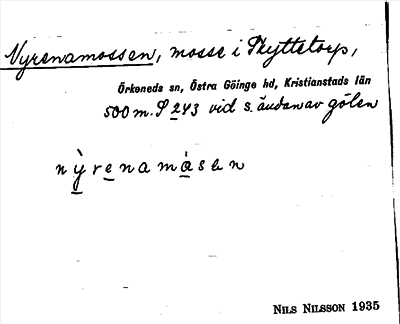 Nyrenamossen, mosse i Skyttetorp,
Örkeneds sn, Östra Göinge hd, Kristianstads län
500 m. S 243 vid s. ändan av gölen
nỳrenamåsen
NILS NILSSON 1935